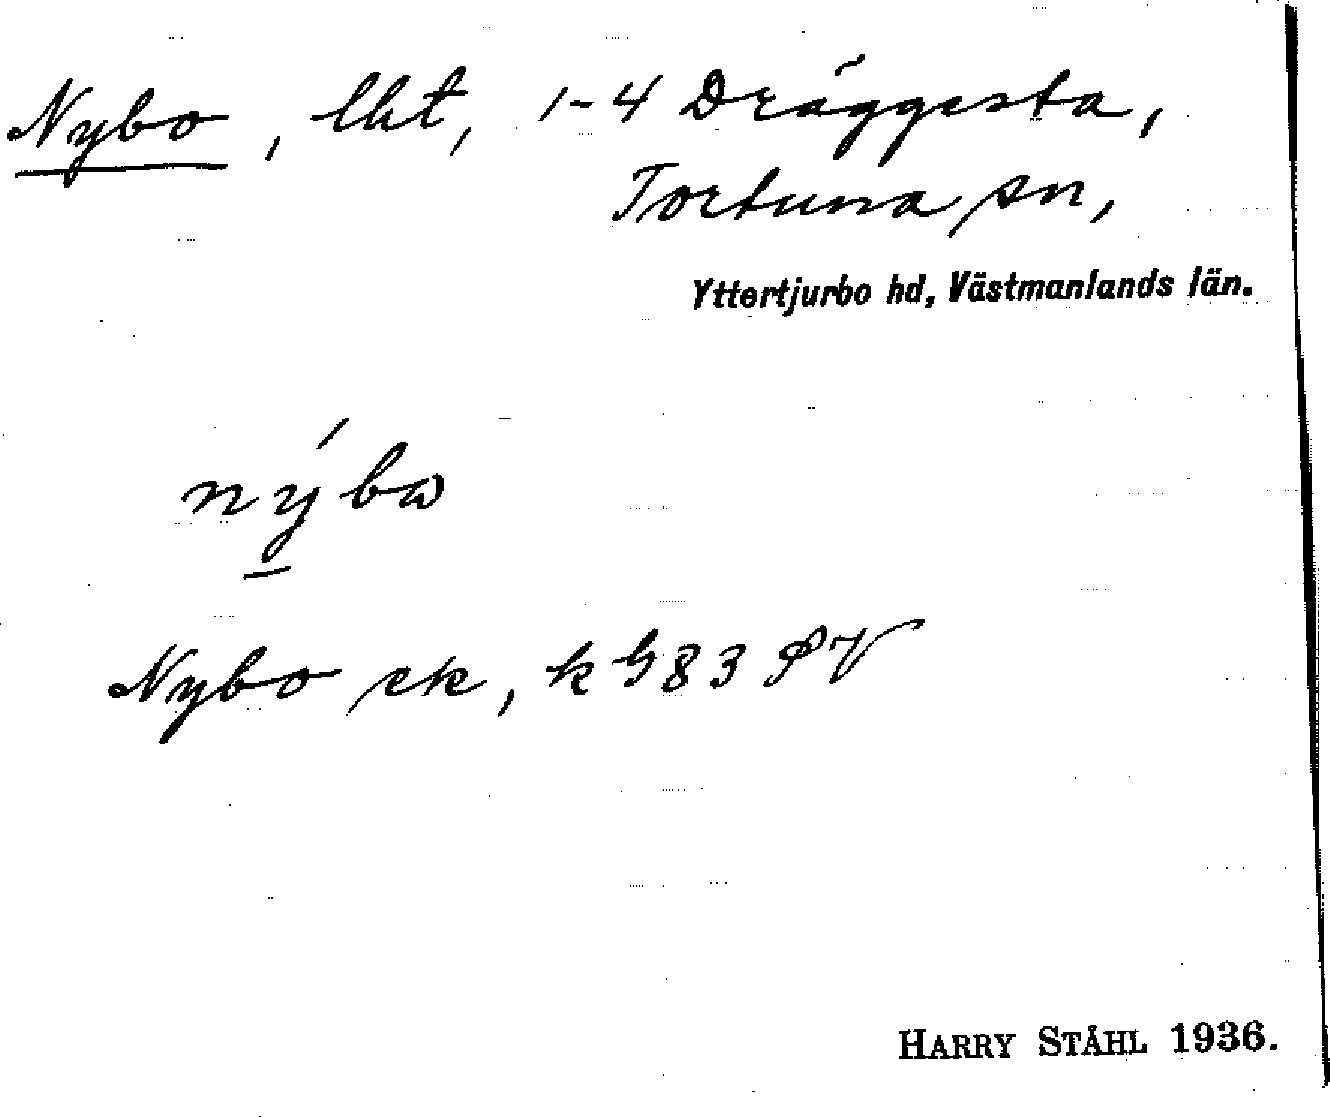 Nybo, lht, 1-4 Dräggesta,
Tortuna sn,
Yttertjurbo hd, Västmanlands län.
nýbω
Nybo
HARRY STÅHL 1936.